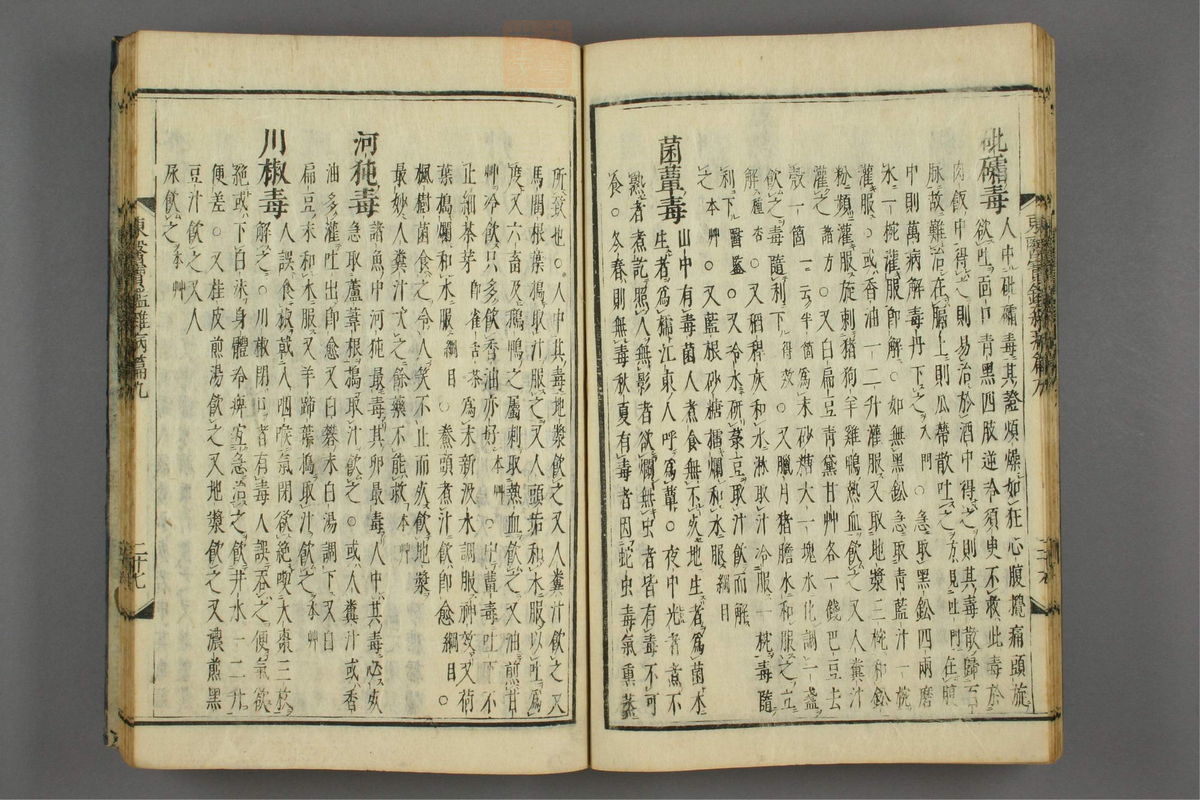 砒礵毒
人中砒礵毒其證煩燥如狂心腹攪痛頭旋
欲吐面口青黑四肢逆冷須臾不救此毒於
肉飯中得之則易治於酒中得之則其毒散歸百
脉故難治在膈上則瓜蔕散吐之方見吐門在腹
中則萬病解毒丹下之入門○急取黑鈆四兩磨
水一椀灌服即解○如無黑鈆急取青藍汁一椀
灌服一○或香油一二升灌服又取地漿三椀和鈆
粉頻灌服旋刺猪狗羊雞鴨熱血飲之又人糞汁
灌之諸方○又白扁豆青黛甘艸各一錢巴豆去
殼一箇一云半箇爲末砂糖大一塊水化調一盞
飲之毒隨利下得效○又臘月猪膽水和服之立
解種杏○又稻稈灰和水淋取汁冷服一椀毒隨
利下醫鑑○又冷水研菉豆取汁飲而解
之本艸○又藍根砂糖擂爛和水服綱目
菌蕈毒
山中有毒菌人煮食無不死地生者爲菌木
生者爲檽江東人呼爲蕈○夜中光者煮不
熟者煮訖照人無影者欲爛無虫者皆有毒不可
食○冬春則無毒秋夏有毒者因蛇虫毒氣熏蒸
東醫寶鑑雜病篇九
二十六
所致也○人中其毒地漿飲之又人糞汁飲之又
馬藺根葉搗取汁服之又人頭垢和水服以吐爲
度又六畜及鵝鴨之屬刺取熱血飲之又油煎甘
艸冷飲只多飲香油亦好本艸○中蕈毒吐下不
止細茶芽即雀舌茶爲末新汲水調服神效又荷
葉搗爛和水服綱目○蕎頭煮汁飲即愈綱目○
楓樹菌食之令人笑不止而死飲地漿
最妙人糞汁次之餘藥不能救本艸
河㹠毒
諸魚中河㹠最毒其卵最毒人中其毒必死
急取蘆葦根搗取汁飲之○或人糞汁或香
油多灌吐出即愈又白礬末白湯調下又白
扁豆末和水服又羊蹄葉搗取汁飲之本艸
川椒毒
人誤食椒戟入咽喉氣閉欲絶喫大棗三枚
解之○川椒閉口者有毒人誤呑之便氣欲
絶或下白沫身體冷痺宜急治之飲井水一二升
便差○又桂皮煎湯飲之又地漿飲之又濃煎黑
豆汁飲之又人
尿飲之本艸
東醫寶鑑雜病篇九
二十七